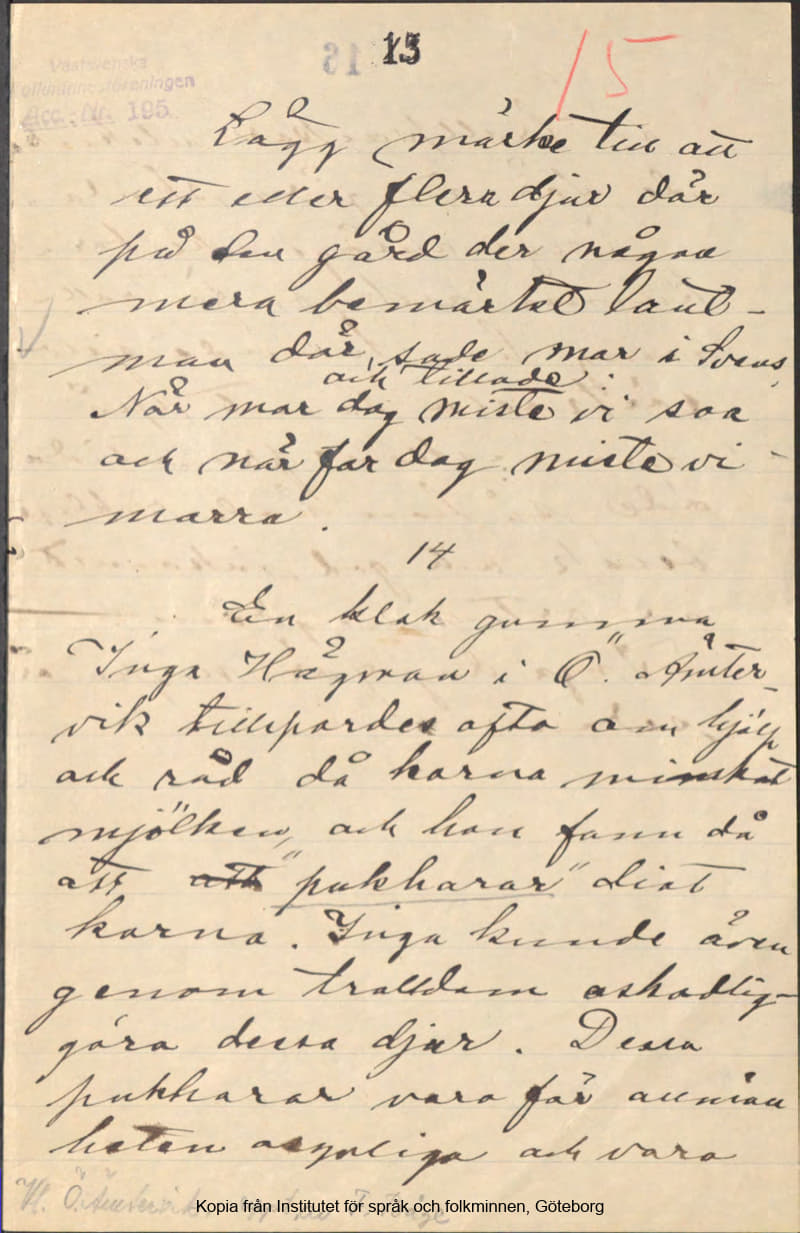 16 13 15
Västsvenska
Folkminnesföreningen
Acc.-Nr. 195
Lägg märke till att
ett eller flera djur dör
på den gård der någon
mera bemärkt lant-
man dör, sade mor i Svens,
och tillade:
När mor dog miste vi soa
och når far dog miste vi
marra.
14
En klok gumma
Inga Hägman i Ö. Ämter-
vik tillspordes ofta om hjälp
och råd då korna minskat
mjölken, och hon fann då
att "pukharar" diat
korna. Inga kunde även
genom trolldom oskadlig-
göra dessa djur. Dessa
pukharar voro för allmän
heten osynliga och voro
Vl. Ö. Ämtervik.
Kopia från Institutet för språk och folkminnen, Göteborg